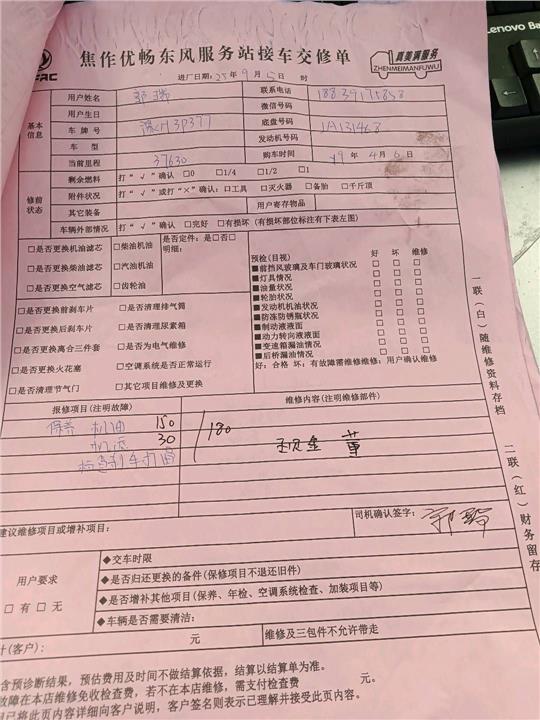 焦作优畅东风服务站接车交修单
真美满服务
ZHENMEIMANFUWU
Lenovo
进厂日期：25年9月5日 时
用户姓名
联系电话
基本信息
用户生日
微信号码
车牌号
底盘号码
1A131468
车型
发动机号码
当前里程 37630
购车时间 19年4月6日
修前状态
剩余燃料 打“√”确认 □0 □1/4 □1/2 □1
附件状况 打“√”或打“×”确认：□工具 □灭火器 □备胎 □千斤顶
其它装备
用户寄存物品
车辆外部情况 打“√”确认 □完好 □有损坏（有损坏部位标注有下表左图）
□是否更换机油滤芯 □柴油机油
是否定件：是□否□
明细：
□是否更换柴油滤芯 □汽油机油
□是否更换空气滤芯 □齿轮油
□是否更换前刹车片 □是否清理排气筒
□是否更换后刹车片 □是否清理尿素箱
□是否更换离合三件套 □是否为电气维修
□是否更换火花塞 □空调系统是否正常运行
□是否清理节气门 □其它项目维修及更换
预检（目视） 好 坏 维修
■前挡风玻璃及车门玻璃状况 □ □ □
■灯具情况 □ □ □
■油量状况 □ □ □
■轮胎状况 □ □ □
■发动机机油状况 □ □ □
■防冻防锈瓶状况 □ □ □
■制动液液面 □ □ □
■动力转向液液面 □ □ □
■变速箱漏油情况 □ □ □
■后桥漏油情况 □ □ □
好：合格 坏：有故障需维修维修：用户确认维修
报修项目（注明故障）
维修内容（注明维修部件）
保养 机油 150
机滤 30
180
现金 董
建议维修项目或增补项目：
司机确认签字：
用户要求
□有 □无
◆交车时限
◆是否归还更换的备件（保修项目不退还旧件）
◆是否增补其他项目（保养、年检、空调系统检查、加装项目等）
◆车辆是否需要清洁：
计（客户）： 元
维修及三包件不允许带走
含预诊断结果，预估费用及时间不做结算依据，结算以结算单为准。
故障在本店维修免收检查费，若不在本店维修，需支付检查费 元。
已将此页内容详细向客户说明，客户签名则表示已理解并接受此页内容。
一联（白）随维修资料存档
二联（红）财务留存